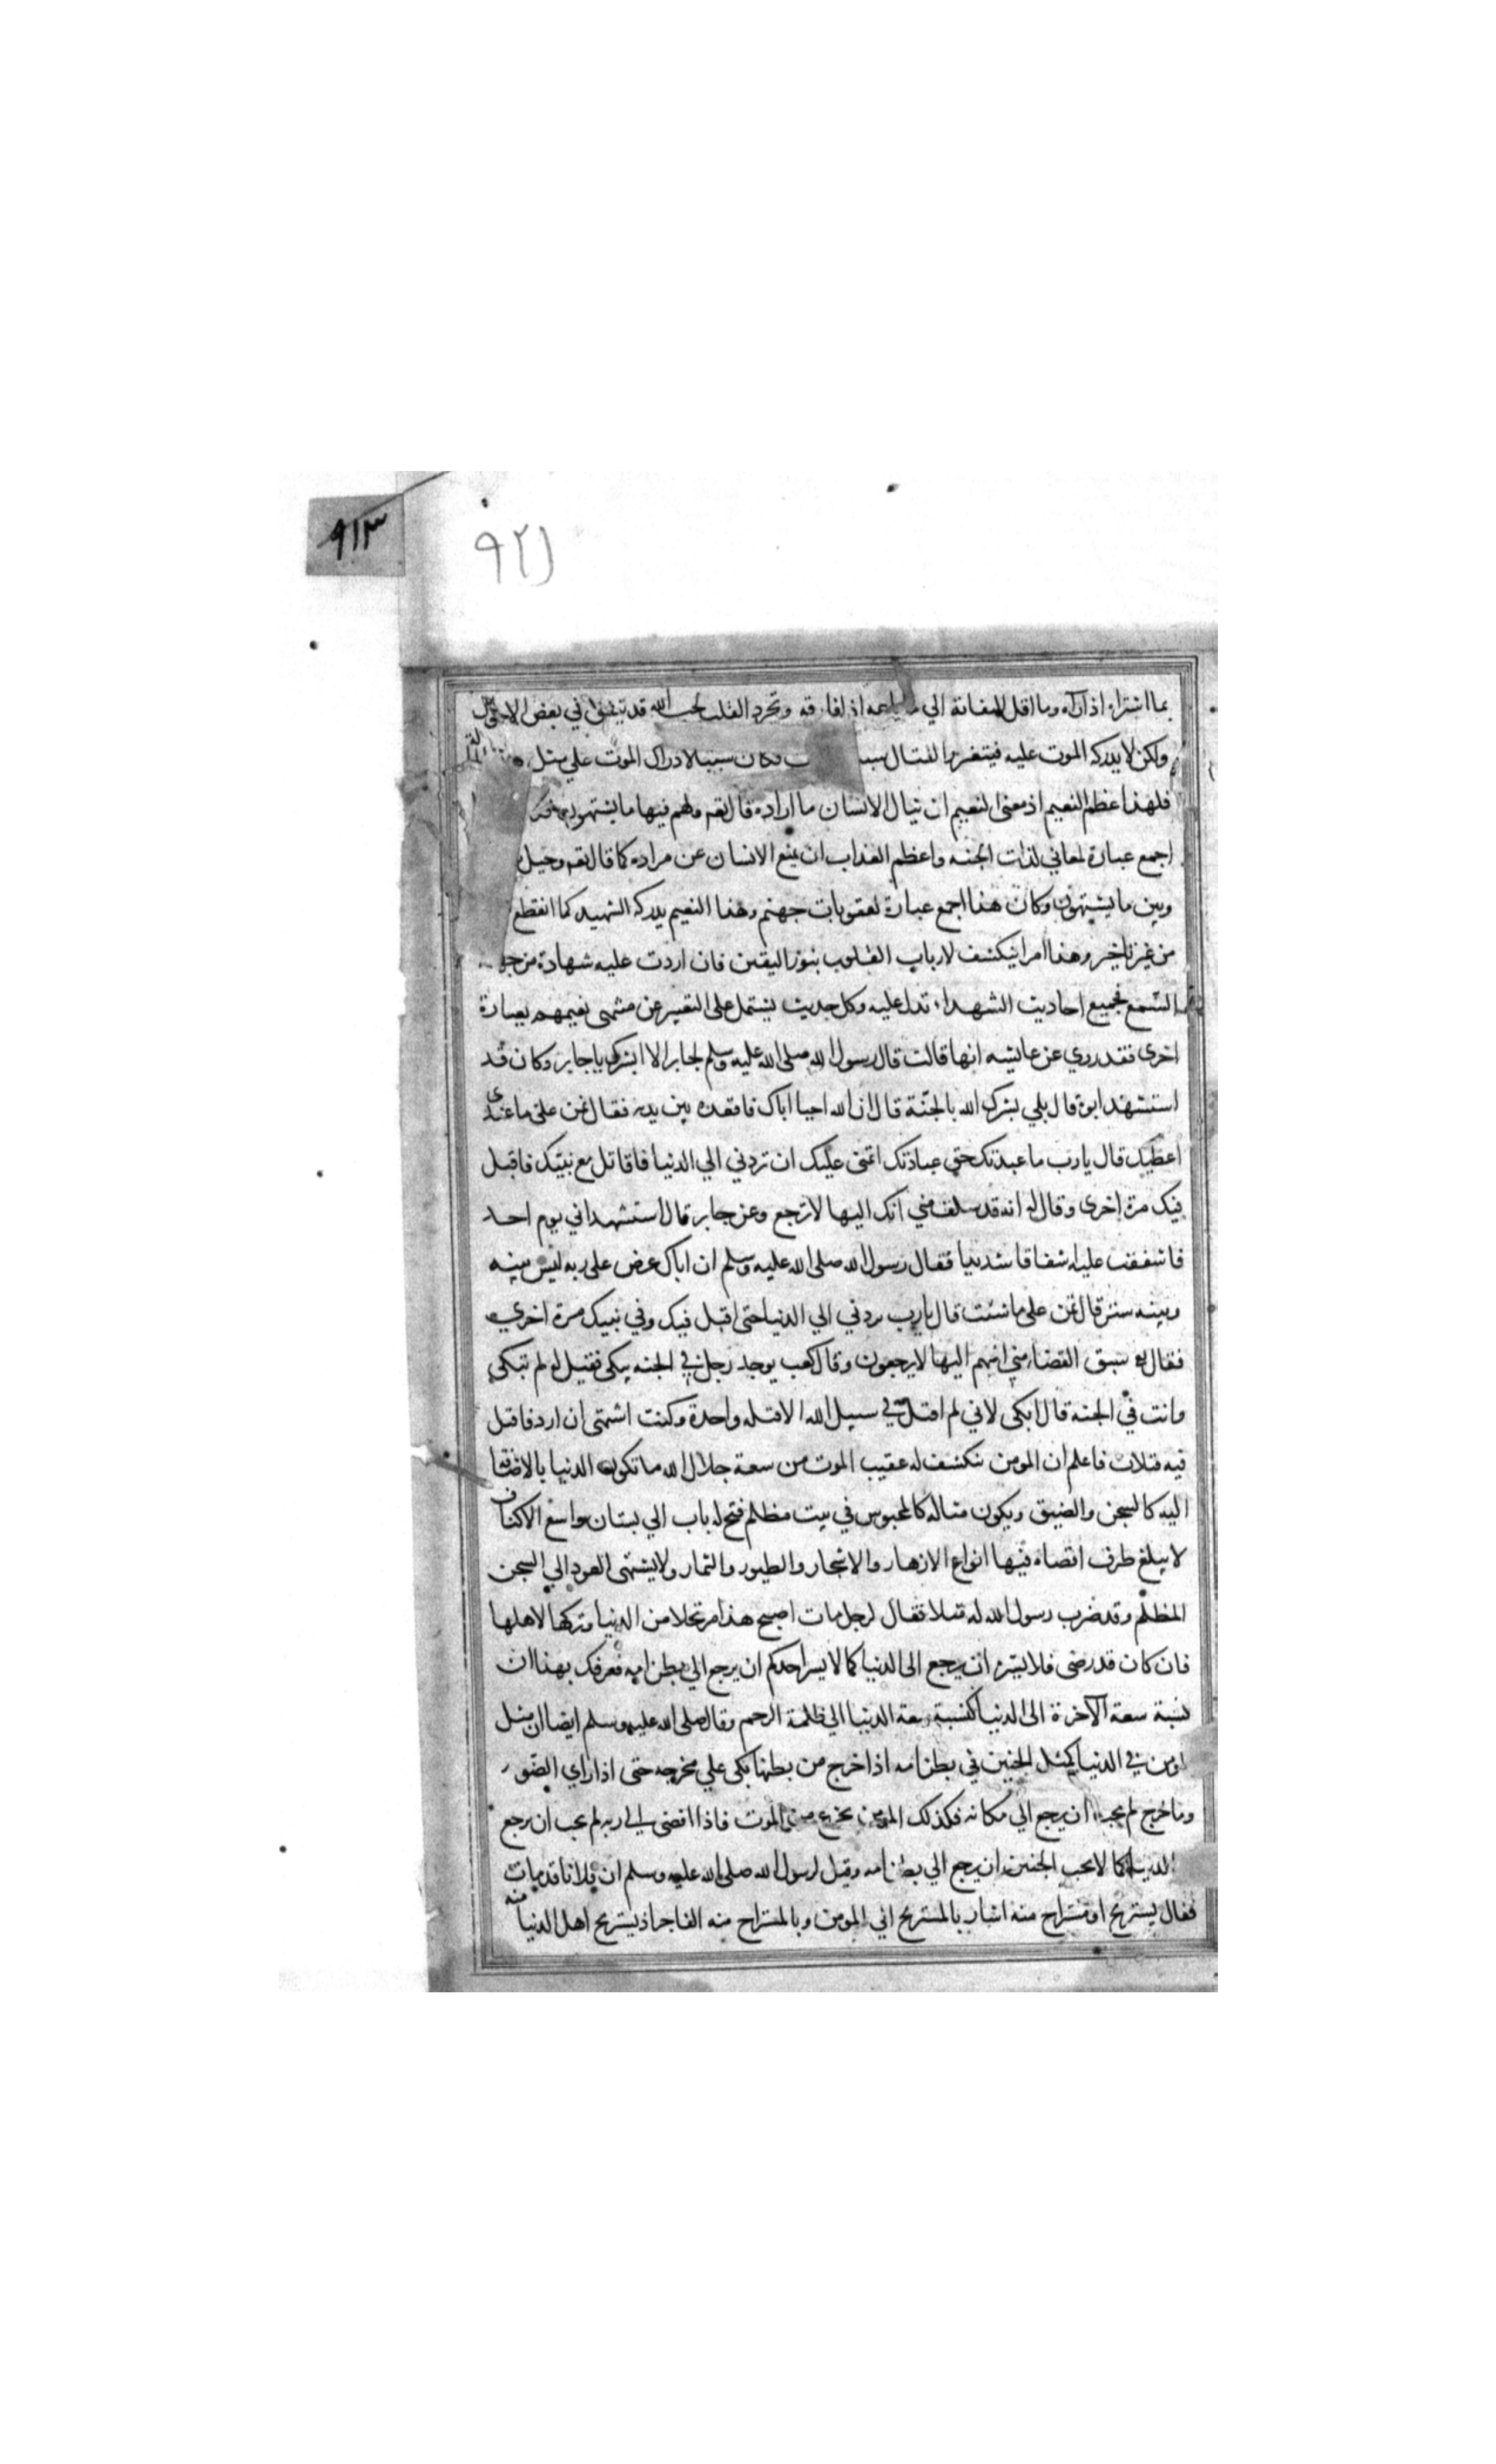 ٩١٣
٩٢١
بما اشتراه اذا رآه وما اقل التفاته الي ما باعه اذا فارقه وتجرد القلب لحب الله قد يتفق في بعض الاحوال
ولكن لا يدركه الموت عليه فيتغير القتال سبب فكان سببا لادراك الموت علي مثل
فلهذا عظم النعيم اذ معنى النعيم ان ينال الانسان ما اراده قال تعم ولهم فيها ما يشتهون
اجمع عبارة لمعاني لذات الجنه واعظم العذاب ان يمنع الانسان عن مراده كما قال تعم وحيل
وبين ما يشتهون وكان هذا اجمع عبارة لعقوبات جهنم وهذا النعيم يدركه الشهيد كما انقطع
من غير تاخير وهذا امر اينكشف لارباب القلوب بنور اليقين فان اردت عليه شهادة من
السمع فجميع احاديث الشهداء تدل عليه وكل حديث يشتمل على التعبير عن منتهى نعيمهم بعبارة
اخرى فقد روي عن عايشه انها قالت قال رسول الله صلى الله عليه وسلم لجابر الا ابشرك يا جابر وكان قد
استشهد ابوه قال بلي بشرك الله بالجنة قال ان الله احيا اباك فاقعده بين يديه فقال تمن علي ما عندي
اعطيك قال يا رب ما عبدتك حق عبادتك اتمنى عليك ان تردني الي الدنيا فاقاتل مع نبيك فاقتل
فيك مرة اخرى وقال له انه قد سلف مني انك اليها لا ترجع وعن جابر قال استشهد ابي يوم احد
فاشفقت عليه اشفاقا شديدا فقال رسول الله صلى الله عليه وسلم ان اباك عرض على ربه ليس بينه
وبينه ستر قال تمن علي ما شئت قال يا رب ردني الي الدنيا حتى اقتل فيك وفي نبيك مرة اخري
فقال له سبق القضاء مني انهم اليها لا يرجعون وقال كعب يوجد رجل في الجنه يبكي فقيل له لم تبكي
وانت في الجنه قال ابكي لاني لم اقتل في سبيل الله الا قتله واحدة وكنت اشتهى ان ارد فاقتل
فيه قتلات فاعلم ان المومن ينكشف له عقيب الموت من سعة جلال الله ما تكون الدنيا بالاضافة
اليه كالسجن والضيق ويكون مثاله كالمحبوس في بيت مظلم فتح له باب الي بستان واسع الاكناف
لا يبلغ طرف اقصاه فيها انواع الازهار والاشجار والطيور والثمار ولا يشتهى العود الي السجن
المظلم وقد ضرب رسول الله له مثلا فقال لرجل مات اصبح هذا مرتحلا من الدنيا وتركها لاهلها
فان كان قد رضى فلا يسره ان يرجع الى الدنيا كما لا يسر احدكم ان يرجع الي بطن امه فعرفك بهذا ان
نسبة سعة الآخرة الى الدنيا كنسبة سعة الدنيا الي ظلمة الرحم وقال صلى الله عليه وسلم ايضا ان مثل
المومن في الدنيا كمثل الجنين في بطن امه اذا خرج من بطنها بكى علي مخرجه حتى اذا راي الضور
وما خرج لم يحب ان يرجع الي مكانه فكذلك المومن يجزع من الموت فاذا افضى الي ربه لم يحب ان يرجع
الدنيا كما لا يحب الجنين ان يرجع الي بطن امه وقيل لرسول الله صلى الله عليه وسلم ان فلانا قد مات
فقال يستريح او مستراح منه اشار بالمستريح الي المومن وبالمستراح منه الفاجر اذ يستريح اهل الدنيا منه